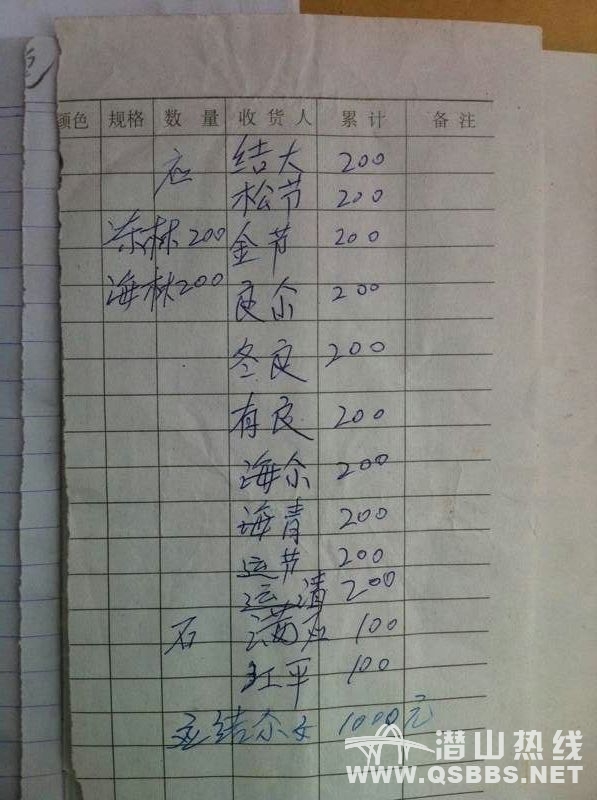 颜色 规格 数量 收货人 累计 备注
应 结大 200
松节 200
东林 200 金节 200
海林 200 良尔 200
冬良 200
有良 200
海尔 200
海青 200
运节 200
运清 200
石 满石 100
红平 100
结尔 1000元
潜山热线
WWW.QSBBS.NET